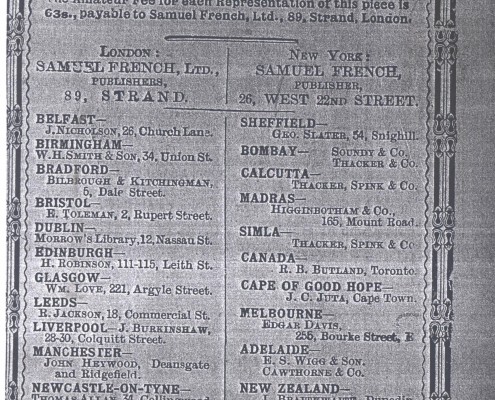 The Amateur Fee for each Representation of this piece is
63s., payable to Samuel French, Ltd., 89, Strand, London.
LONDON:
SAMUEL FRENCH, LTD.,
PUBLISHERS,
89, STRAND.
BELFAST—
J. NICHOLSON, 26, Church Lane.
BIRMINGHAM—
W. H. SMITH & SON, 34, Union St.
BRADFORD—
BILBROUGH & KITCHINGMAN,
5, Dale Street.
BRISTOL—
E. TOLEMAN, 2, Rupert Street.
DUBLIN—
MORROW'S Library, 12, Nassau St.
EDINBURGH—
H. ROBINSON, 111-115, Leith St.
GLASGOW—
WM. LOVE, 221, Argyle Street.
LEEDS—
R. JACKSON, 18, Commercial St.
LIVERPOOL—J. BURKINSHAW,
28-30, Colquitt Street.
MANCHESTER—
JOHN HEYWOOD, Deansgate
and Ridgefield.
NEWCASTLE-ON-TYNE—
THOMAS ALLAN, 34, Collingwood
NEW YORK:
SAMUEL FRENCH,
PUBLISHER,
26, WEST 22ND STREET.
SHEFFIELD—
GEO. SLATER, 54, Snighill.
BOMBAY— SOUNDY & CO.
THACKER & CO.
CALCUTTA—
THACKER, SPINK & CO.
MADRAS—
HIGGINBOTHAM & CO.,
165, Mount Road.
SIMLA—
THACKER, SPINK & CO
CANADA—
R. B. BUTLAND, Toronto.
CAPE OF GOOD HOPE—
J. C. JUTA, Cape Town.
MELBOURNE—
EDGAR DAVIS,
255, Bourke Street, E
ADELAIDE—
E. S. WIGG & SON.
CAWTHORNE & CO.
NEW ZEALAND—
BRAITHWAITE, Dunedin